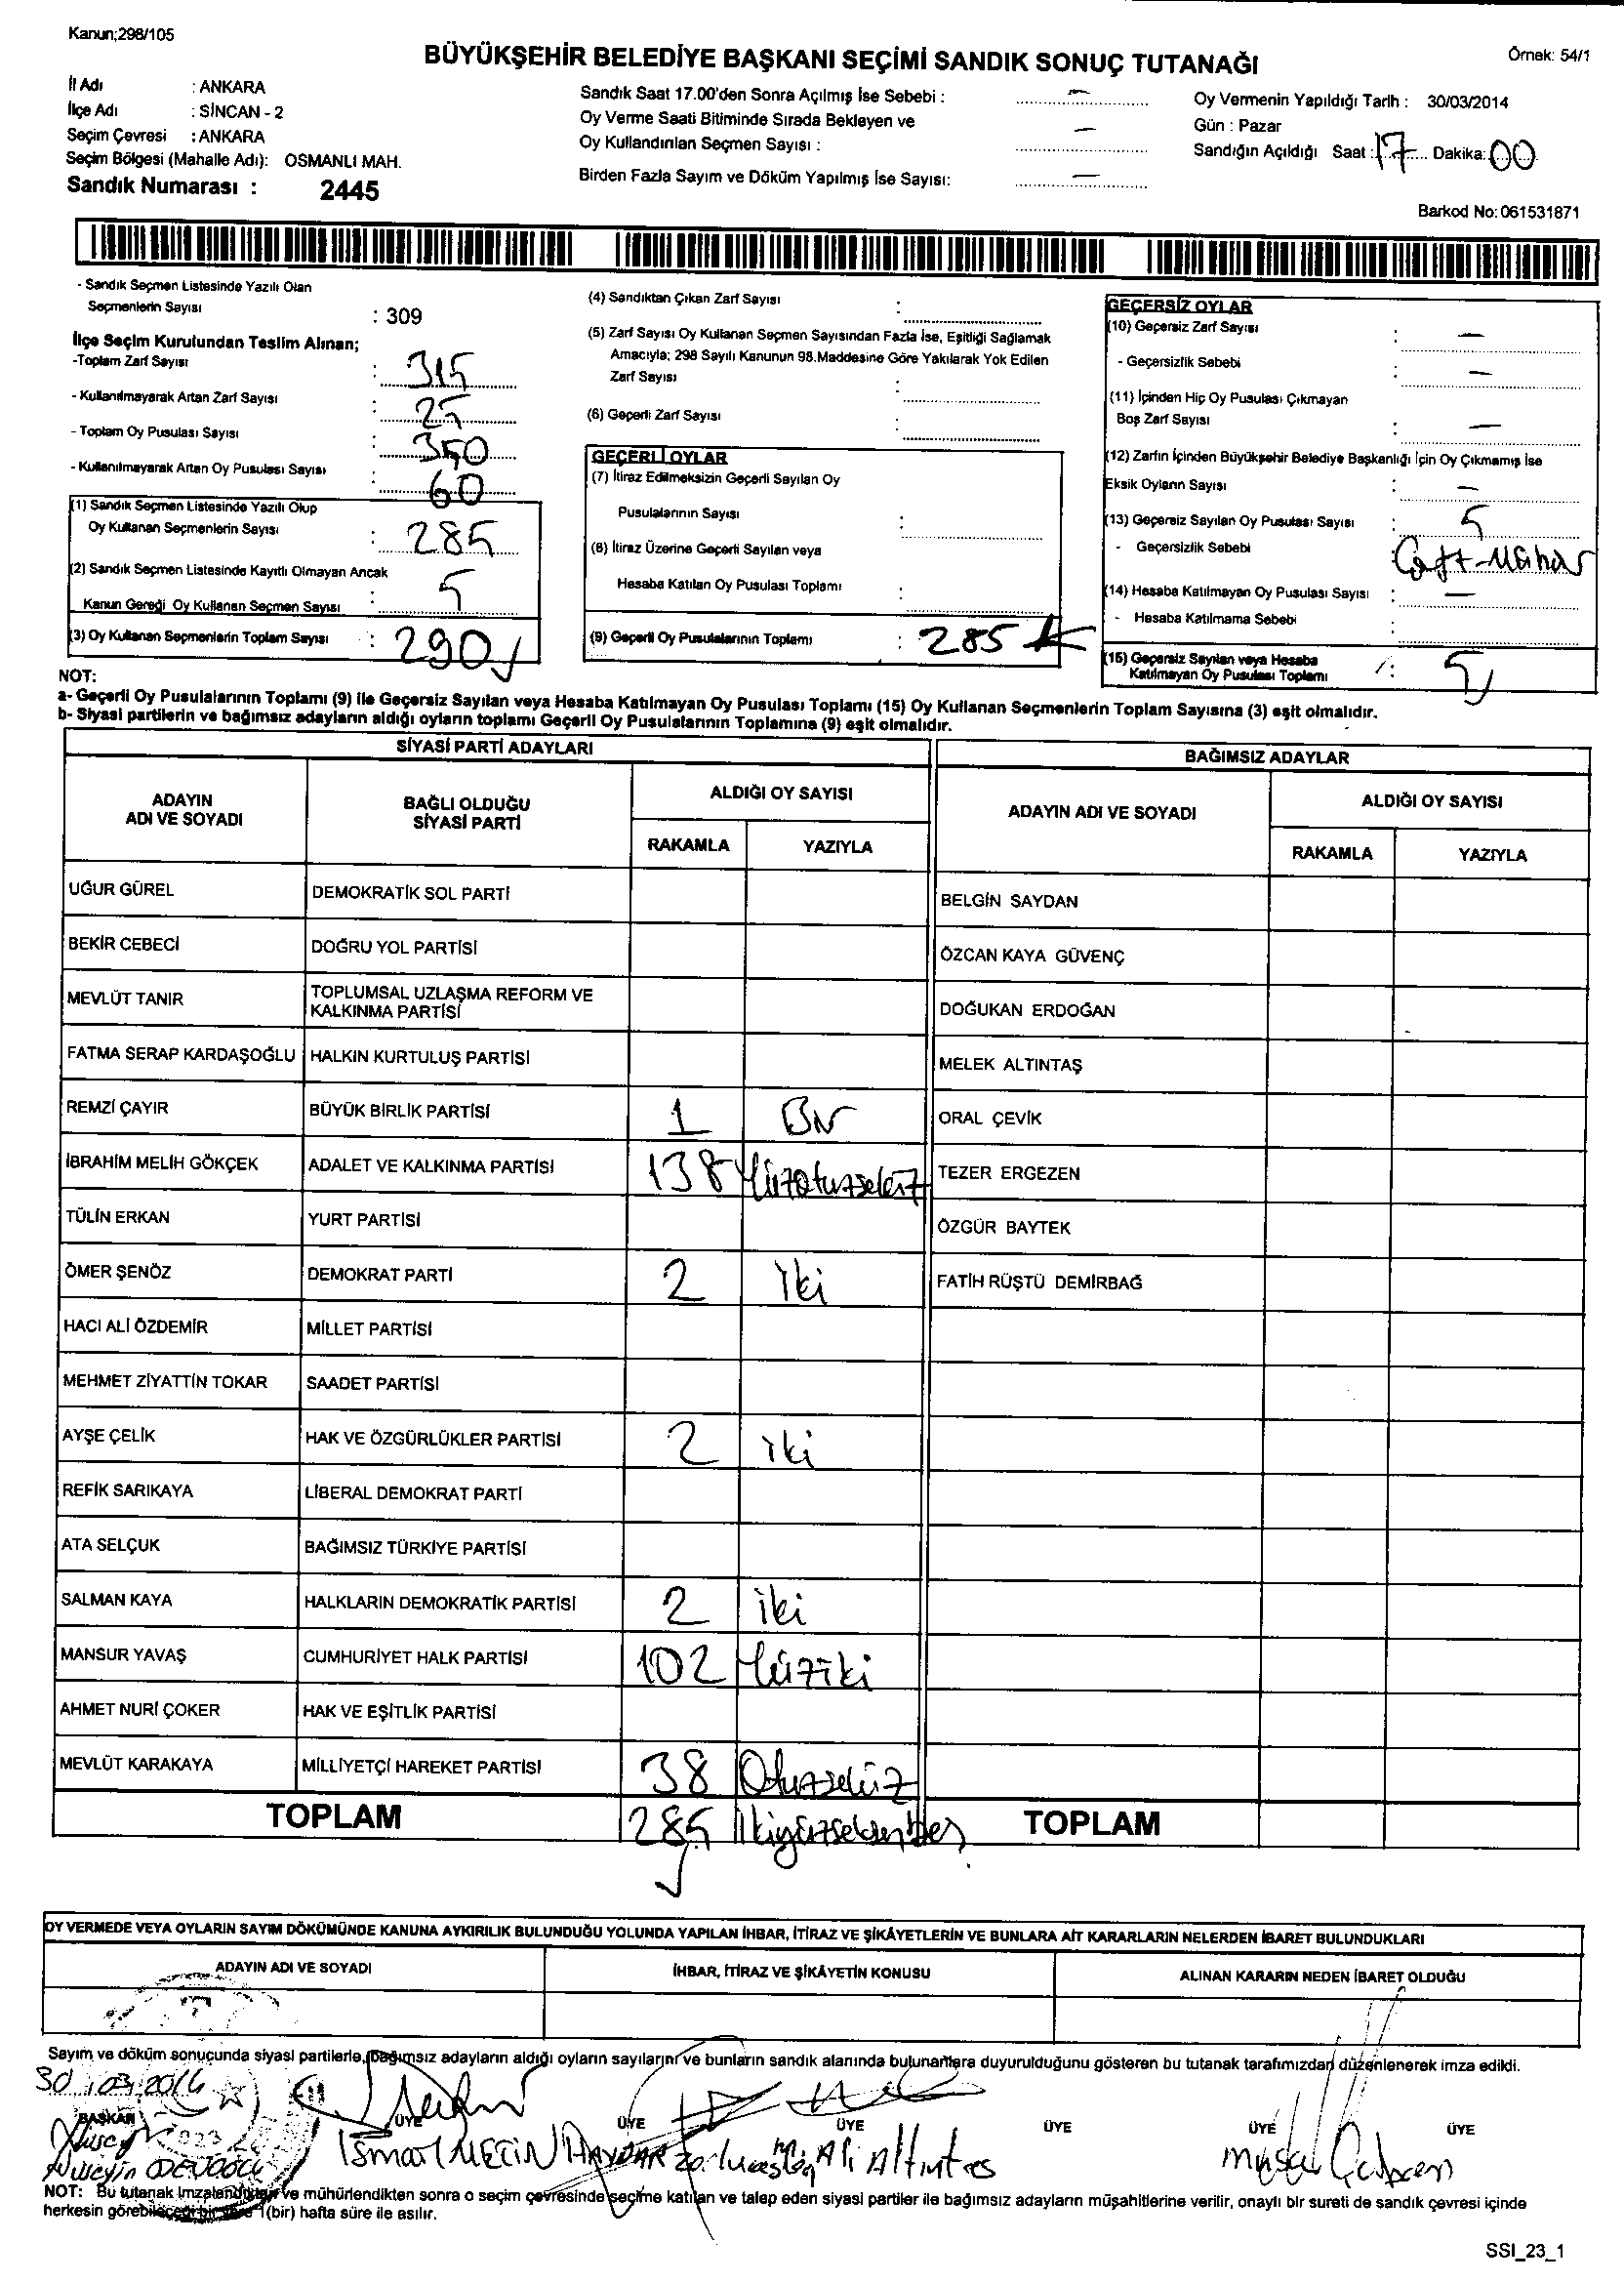 Kanun;298/105
BÜYÜKŞEHİR BELEDİYE BAŞKANI SEÇİMİ SANDIK SONUÇ TUTANAĞI
Örnek: 54/1
İl Adı : ANKARA
İlçe Adı : SİNCAN - 2
Seçim Çevresi : ANKARA
Seçim Bölgesi (Mahalle Adı): OSMANLI MAH.
Sandık Numarası : 2445
Sandık Saat 17.00'den Sonra Açılmış İse Sebebi : —
Oy Verme Saati Bitiminde Sırada Bekleyen ve
Oy Kullandırılan Seçmen Sayısı : —
Birden Fazla Sayım ve Döküm Yapılmış İse Sayısı: —
Oy Vermenin Yapıldığı Tarih : 30/03/2014
Gün : Pazar
Sandığın Açıldığı Saat : 17 Dakika: 00
Barkod No: 061531871
- Sandık Seçmen Listesinde Yazılı Olan
Seçmenlerin Sayısı : 309
İlçe Seçim Kurulundan Teslim Alınan;
-Toplam Zarf Sayısı : 315
- Kullanılmayarak Artan Zarf Sayısı : 25
- Toplam Oy Pusulası Sayısı : 350
- Kullanılmayarak Artan Oy Pusulası Sayısı : 60
(1) Sandık Seçmen Listesinde Yazılı Olup
Oy Kullanan Seçmenlerin Sayısı : 285
(2) Sandık Seçmen Listesinde Kayıtlı Olmayan Ancak
Kanun Gereği Oy Kullanan Seçmen Sayısı : 5
(3) Oy Kullanan Seçmenlerin Toplam Sayısı : 290
(4) Sandıktan Çıkan Zarf Sayısı :
(5) Zarf Sayısı Oy Kullanan Seçmen Sayısından Fazla İse, Eşitliği Sağlamak
Amacıyla; 298 Sayılı Kanunun 98.Maddesine Göre Yakılarak Yok Edilen
Zarf Sayısı :
(6) Geçerli Zarf Sayısı :
GEÇERLİ OYLAR
(7) İtiraz Edilmeksizin Geçerli Sayılan Oy
Pusulalarının Sayısı :
(8) İtiraz Üzerine Geçerli Sayılan veya
Hesaba Katılan Oy Pusulası Toplamı :
(9) Geçerli Oy Pusulalarının Toplamı : 285
GEÇERSİZ OYLAR
(10) Geçersiz Zarf Sayısı : —
- Geçersizlik Sebebi : —
(11) İçinden Hiç Oy Pusulası Çıkmayan
Boş Zarf Sayısı : —
(12) Zarfın İçinden Büyükşehir Belediye Başkanlığı İçin Oy Çıkmamış İse
Eksik Oyların Sayısı : —
(13) Geçersiz Sayılan Oy Pusulası Sayısı : 5
- Geçersizlik Sebebi
(14) Hesaba Katılmayan Oy Pusulası Sayısı : —
- Hesaba Katılmama Sebebi :
(15) Geçersiz Sayılan veya Hesaba
Katılmayan Oy Pusulası Toplamı : 5
NOT:
a- Geçerli Oy Pusulalarının Toplamı (9) ile Geçersiz Sayılan veya Hesaba Katılmayan Oy Pusulası Toplamı (15) Oy Kullanan Seçmenlerin Toplam Sayısına (3) eşit olmalıdır.
b- Siyasi partilerin ve bağımsız adayların aldığı oyların toplamı Geçerli Oy Pusulalarının Toplamına (9) eşit olmalıdır.
SİYASİ PARTİ ADAYLARI
ADAYIN ADI VE SOYADI BAĞLI OLDUĞU SİYASİ PARTİ ALDIĞI OY SAYISI
RAKAMLA YAZIYLA
UĞUR GÜREL DEMOKRATİK SOL PARTİ
BEKİR CEBECİ DOĞRU YOL PARTİSİ
MEVLÜT TANIR TOPLUMSAL UZLAŞMA REFORM VE KALKINMA PARTİSİ
FATMA SERAP KARDAŞOĞLU HALKIN KURTULUŞ PARTİSİ
REMZİ ÇAYIR BÜYÜK BİRLİK PARTİSİ 1 Bir
İBRAHİM MELİH GÖKÇEK ADALET VE KALKINMA PARTİSİ 138 Yüzotuzsekiz
TÜLİN ERKAN YURT PARTİSİ
ÖMER ŞENÖZ DEMOKRAT PARTİ 2 iki
HACI ALİ ÖZDEMİR MİLLET PARTİSİ
MEHMET ZİYATTİN TOKAR SAADET PARTİSİ
AYŞE ÇELİK HAK VE ÖZGÜRLÜKLER PARTİSİ 2 iki
REFİK SARIKAYA LİBERAL DEMOKRAT PARTİ
ATA SELÇUK BAĞIMSIZ TÜRKİYE PARTİSİ
SALMAN KAYA HALKLARIN DEMOKRATİK PARTİSİ 2 iki
MANSUR YAVAŞ CUMHURİYET HALK PARTİSİ 102 Yüziki
AHMET NURİ ÇOKER HAK VE EŞİTLİK PARTİSİ
MEVLÜT KARAKAYA MİLLİYETÇİ HAREKET PARTİSİ 38 Otuzsekiz
TOPLAM 285 İkiyüzseksenbeş
BAĞIMSIZ ADAYLAR
ADAYIN ADI VE SOYADI ALDIĞI OY SAYISI
RAKAMLA YAZIYLA
BELGİN SAYDAN
ÖZCAN KAYA GÜVENÇ
DOĞUKAN ERDOĞAN
MELEK ALTINTAŞ
ORAL ÇEVİK
TEZER ERGEZEN
ÖZGÜR BAYTEK
FATİH RÜŞTÜ DEMİRBAĞ
TOPLAM
OY VERMEDE VEYA OYLARIN SAYIM DÖKÜMÜNDE KANUNA AYKIRILIK BULUNDUĞU YOLUNDA YAPILAN İHBAR, İTİRAZ VE ŞİKÂYETLERİN VE BUNLARA AİT KARARLARIN NELERDEN İBARET BULUNDUKLARI
ADAYIN ADI VE SOYADI İHBAR, İTİRAZ VE ŞİKÂYETİN KONUSU ALINAN KARARIN NEDEN İBARET OLDUĞU
Sayım ve döküm sonucunda siyasi partilerle, bağımsız adayların aldığı oyların sayılarını ve bunların sandık alanında bulunanlara duyurulduğunu gösteren bu tutanak tarafımızdan düzenlenerek imza edildi.
30/03/2014
BAŞKAN ÜYE ÜYE ÜYE ÜYE ÜYE ÜYE
Hüseyin İsmail METİN HAYDAR Ali Altıntas
NOT: Bu tutanak imzalandıktan ve mühürlendikten sonra o seçim çevresinde seçime katılan ve talep eden siyasi partiler ile bağımsız adayların müşahitlerine verilir, onaylı bir sureti de sandık çevresi içinde
herkesin görebileceği bir yere 1(bir) hafta süre ile asılır.
SSI_23_1